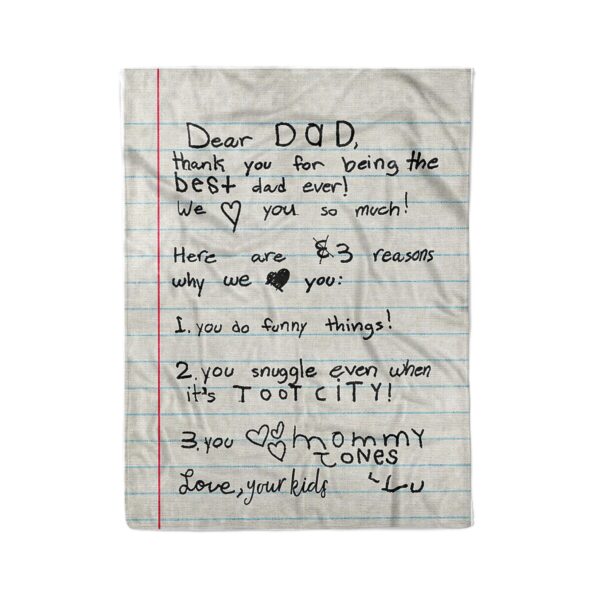 Dear DAD,
thank you for being the
best dad ever!
We ♡ you so much!
Here are 3 reasons
why we ♥ you:
1. you do funny things!
2. you snuggle even when
it's TOOT CITY!
3. you ♡♡♡ mommy
TONES
Love, your kids